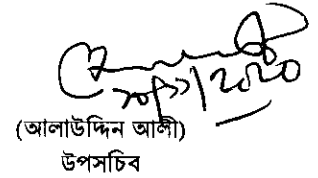 (আলাউদ্দিন আলী)
উপসচিব